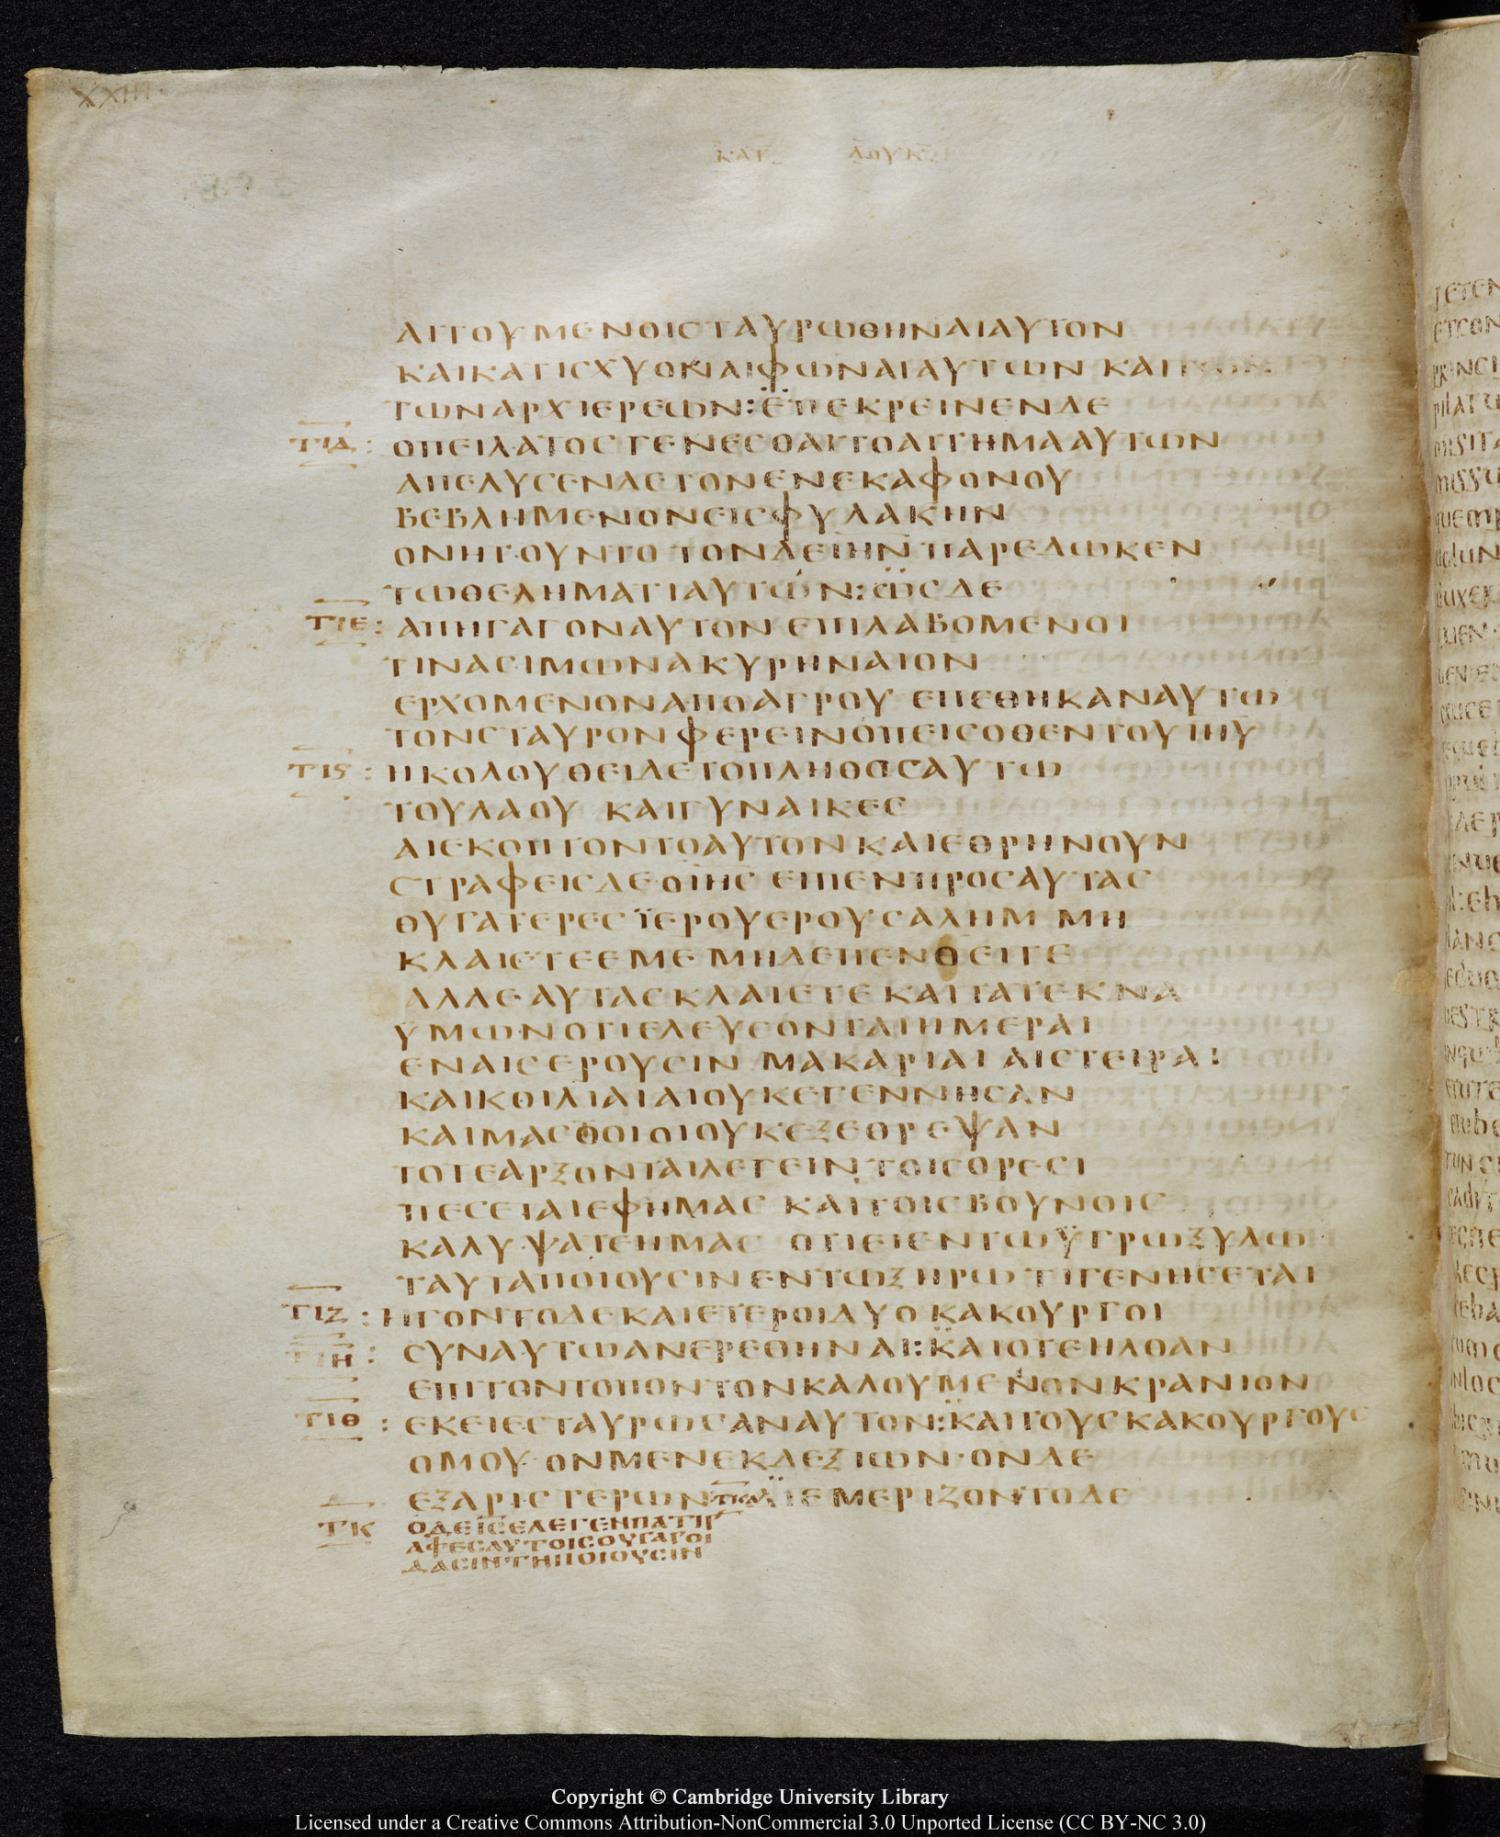 XXIII
ΚΑΤ ΛΟΥΚ
ΑΙΤΟΥΜΕΝΟΙΣΤΑΥΡΩΘΗΝΑΙΑΥΤΟΝ
ΚΑΙΚΑΤΙΣΧΥΟΝΑΙΦΩΝΑΙΑΥΤΩΝ ΚΑΙ
ΤΩΝΑΡΧΙΕΡΕΩΝ:ΕΠΕΚΡΕΙΝΕΝΔΕ
ΤΙΔ: ΟΠΕΙΛΑΤΟΣΓΕΝΕΣΘΑΙΤΟΑΙΤΗΜΑΑΥΤΩΝ
ΑΠΕΛΥΣΕΝΔΕΤΟΝΕΝΕΚΑΦΟΝΟΥ
ΒΕΒΛΗΜΕΝΟΝΕΙΣΦΥΛΑΚΗΝ
ΟΝΗΤΟΥΝΤΟ ΤΟΝΔΕΙΗΝ ΠΑΡΕΔΩΚΕΝ
ΤΩΘΕΛΗΜΑΤΙΑΥΤΩΝ:ΩΣΔΕ
ΤΙΕ: ΑΠΗΓΑΓΟΝΑΥΤΟΝ ΕΠΙΛΑΒΟΜΕΝΟΙ
ΤΙΝΑΣΙΜΩΝΑΚΥΡΗΝΑΙΟΝ
ΕΡΧΟΜΕΝΟΝΑΠΟΑΓΡΟΥ ΕΠΕΘΗΚΑΝΑΥΤΩ
ΤΟΝΣΤΑΥΡΟΝΦΕΡΕΙΝΟΠΕΙΣΟΘΕΝΤΟΥΙΗΥ
ΤΙϚ: ΗΚΟΛΟΥΘΕΙΔΕΤΟΠΛΗΘΟΣΑΥΤΩ
ΤΟΥΛΑΟΥ ΚΑΙΓΥΝΑΙΚΕΣ
ΑΙΕΚΟΠΤΟΝΤΟΑΥΤΟΝΚΑΙΕΘΡΗΝΟΥΝ
ΣΤΡΑΦΕΙΣΔΕΟΙΗΣ ΕΙΠΕΝΠΡΟΣΑΥΤΑΣ
ΘΥΓΑΤΕΡΕΣ ΪΕΡΟΥΕΡΟΥΣΑΛΗΜ ΜΗ
ΚΛΑΙΕΤΕΕΜΕ ΜΗΔΕΠΕΝΘΕΙΤΕ
ΑΛΛΕΑΥΤΑΣΚΛΑΙΕΤΕ ΚΑΙΤΑΤΕΚΝΑ
ΥΜΩΝΟΤΙΕΛΕΥΣΟΝΤΑΙΗΜΕΡΑΙ
ΕΝΑΙΣΕΡΟΥΣΙΝ ΜΑΚΑΡΙΑΙ ΑΙΣΤΕΙΡΑΙ
ΚΑΙΚΟΙΛΙΑΙΑΙΟΥΚΕΓΕΝΝΗΣΑΝ
ΚΑΙΜΑΣΘΟΙΟΙΟΥΚΕΞΕΘΡΕΨΑΝ
ΤΟΤΕΑΡΞΟΝΤΑΙΛΕΓΕΙΝ ΤΟΙΣΟΡΕΣΙ
ΠΕΣΕΤΑΙΕΦΗΜΑΣ ΚΑΙΤΟΙΣΒΟΥΝΟΙΣ
ΚΑΛΥΨΑΤΕΗΜΑΣ ΟΤΙΕΙΕΝΤΩΫΓΡΩΞΥΛΩ
ΤΑΥΤΑΠΟΙΟΥΣΙΝ ΕΝΤΩΞΗΡΩ ΤΙΓΕΝΗΣΕΤΑΙ
ΤΙΖ: ΗΓΟΝΤΟΔΕΚΑΙΕΤΕΡΟΙΔΥΟ ΚΑΚΟΥΡΓΟΙ
ΤΙΗ: ΣΥΝΑΥΤΩΑΝΕΡΕΘΗΝΑΙ:ΚΑΙΟΤΕΗΛΘΑΝ
ΕΠΙΤΟΝΤΟΠΟΝΤΟΝΚΑΛΟΥΜΕΝΟΝΚΡΑΝΙΟΝ
ΤΙΘ: ΕΚΕΙΕΣΤΑΥΡΩΣΑΝΑΥΤΟΝ:ΚΑΙΤΟΥΣΚΑΚΟΥΡΓΟΥΣ
ΟΜΟΥ ΟΝΜΕΝΕΚΔΕΞΙΩΝ·ΟΝΔΕ
ΕΞΑΡΙΣΤΕΡΩΝ ΔΙΕΜΕΡΙΖΟΝΤΟΔΕ
ΤΚ ΟΔΕΙΣΕΛΕΓΕΝΠΑΤΙΡ
ΑΦΕΣΑΥΤΟΙΣΟΥΓΑΡΟΙ
ΔΑΣΙΝΤΗΠΟΙΟΥΣΙΝ
Copyright © Cambridge University Library
Licensed under a Creative Commons Attribution-NonCommercial 3.0 Unported License (CC BY-NC 3.0)